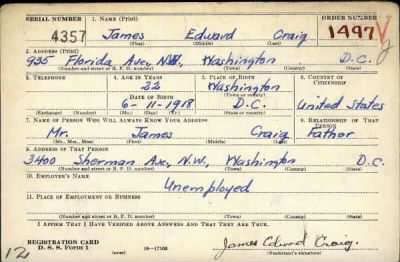 SERIAL NUMBER 1. NAME (Print) ORDER NUMBER
4357 James Edward Craig 1497
(First) (Middle) (Last)
2. ADDRESS (Print)
935 Florida Ave, N.W., Washington D.C.
(Number and street or R. F. D. number) (Town) (County) (State)
3. TELEPHONE 4. AGE IN YEARS 5. PLACE OF BIRTH 6. COUNTRY OF CITIZENSHIP
22 Washington
DATE OF BIRTH (Town or county)
6-11-1918 D.C. United States
(Exchange) (Number) (Mo.) (Day) (Yr.) (State or country)
7. NAME OF PERSON WHO WILL ALWAYS KNOW YOUR ADDRESS 8. RELATIONSHIP OF THAT PERSON
Mr. James Craig Father
(Mr., Mrs., Miss) (First) (Middle) (Last)
9. ADDRESS OF THAT PERSON
3400 Sherman Ave, N.W., Washington D.C.
(Number and street or R. F. D. number) (Town) (County) (State)
10. EMPLOYER'S NAME
Unemployed
11. PLACE OF EMPLOYMENT OR BUSINESS
(Number and street or R. F. D. number) (Town) (County) (State)
I AFFIRM THAT I HAVE VERIFIED ABOVE ANSWERS AND THAT THEY ARE TRUE.
REGISTRATION CARD
D. S. S. Form 1 16—17105 James Edward Craig.
(over) (Registrant's signature)
12